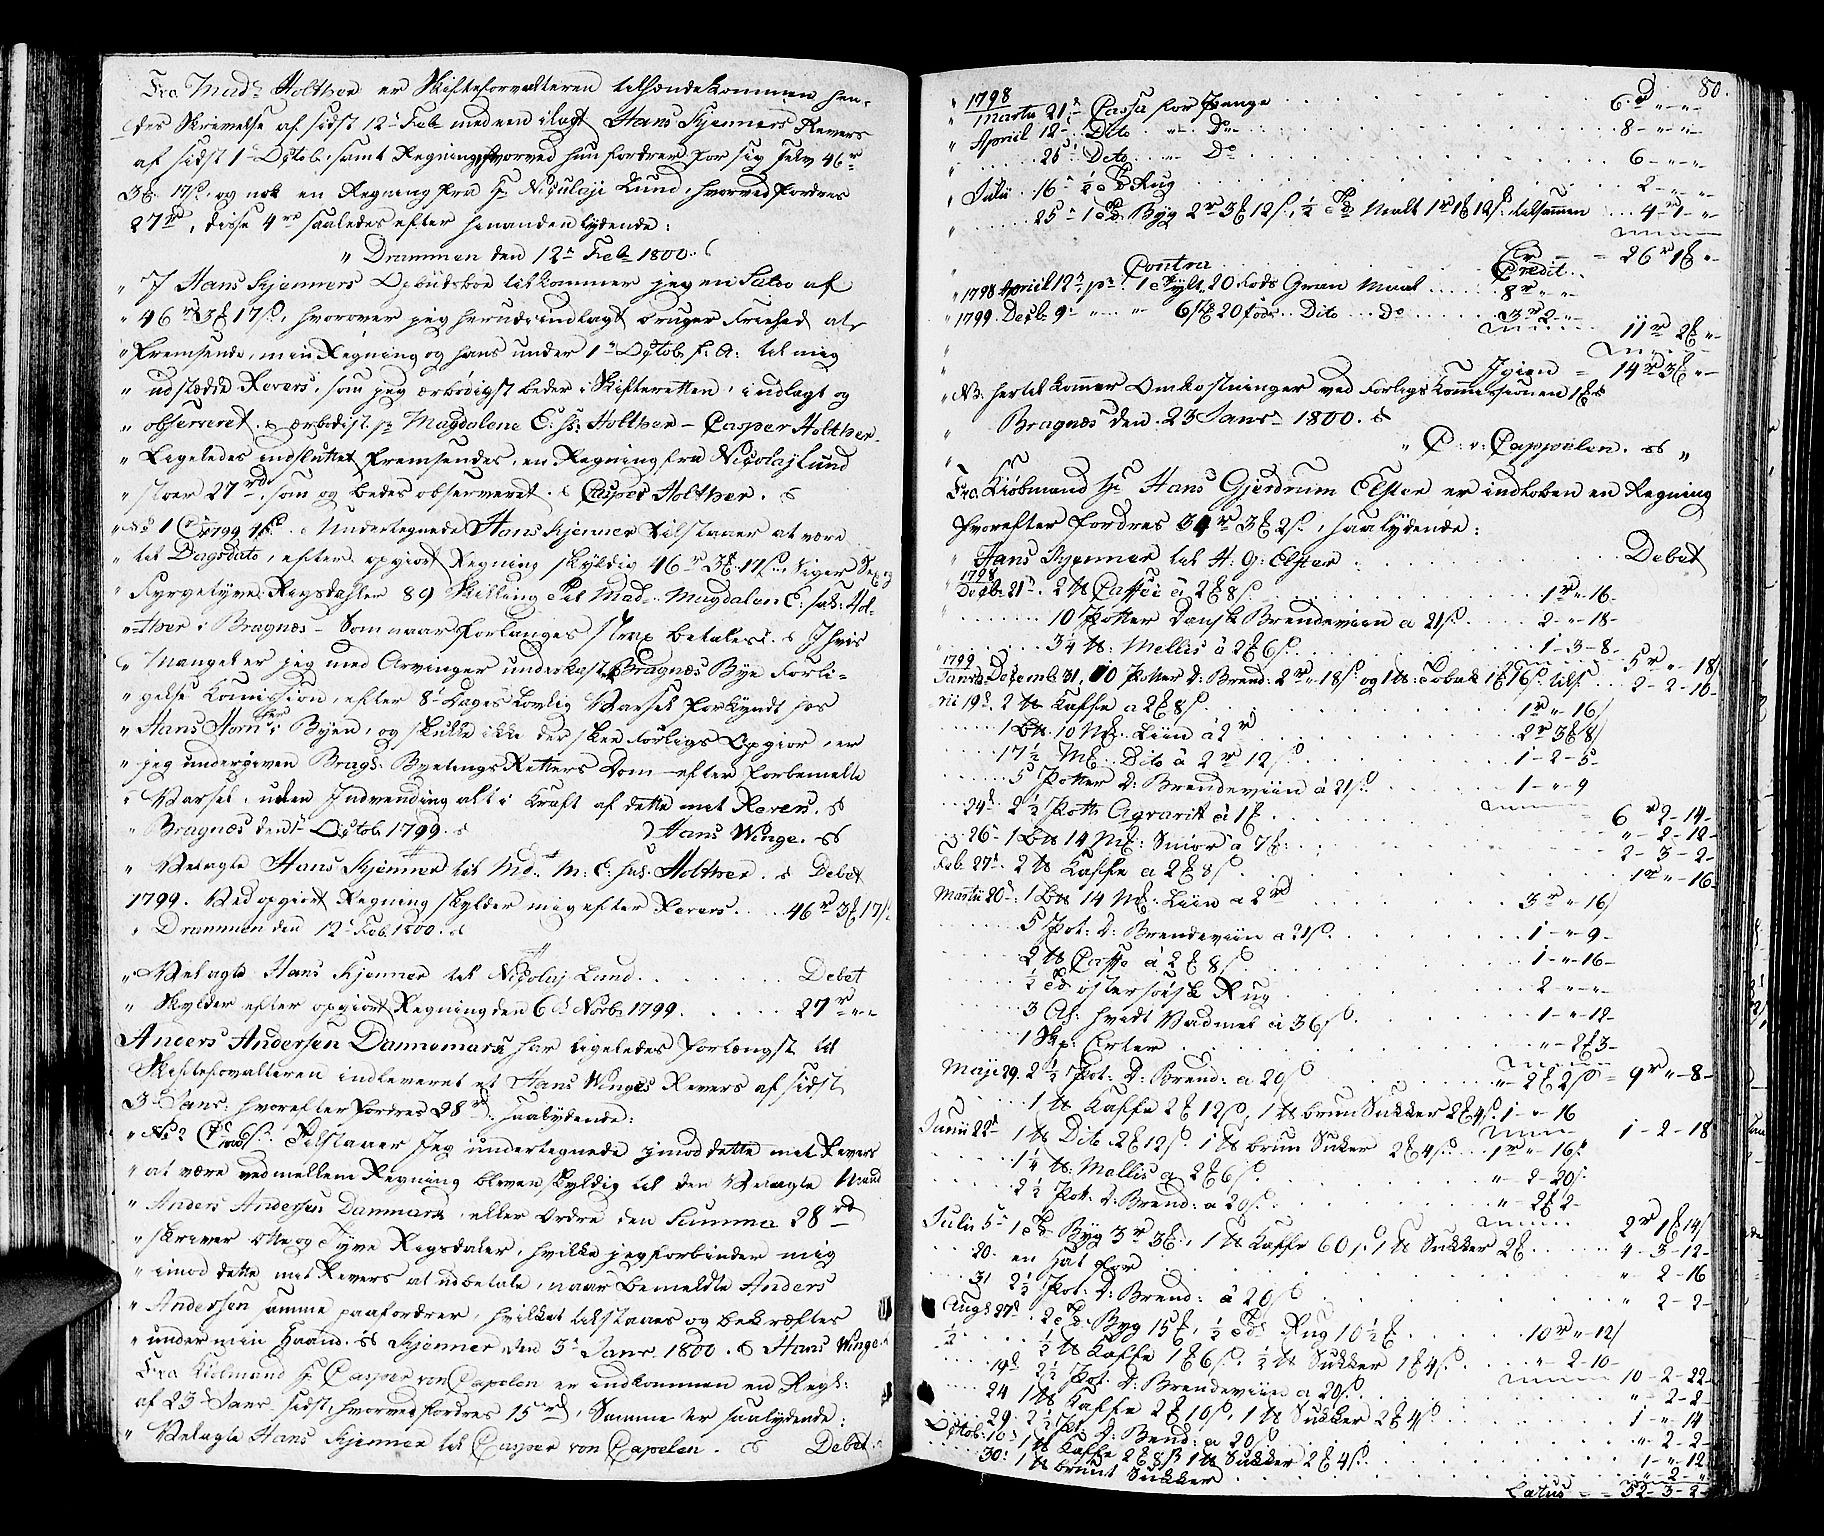 Fra Mad: Holther er Skifteforvalteren tilhændekommen hen-
des Skrivelse af sidst 12 Feb: med een ilagt Hans Kjenners Revers
af sidst 1 Octob: samt Regning hvorved hun fordrer for sig selv 46 rd
3 17 s, og nok en Regning fra Hr Nicolaji Lund, hvorved fordres
27 rd, disse saaledes efter hinanden lydende:
" Drammen den 12 Feb 1800.
" I Hans Kjenners Opbudsboe tilkommer jeg en Saldo af
" 46 rd 3 17 s, hvorover jeg herudi indlagt bruger Friehed at
" fremsende, min Regning og hans under 1 Octob f: A: til mig
" udstædde Revers, som jeg ærbødigst beder i Skifteretten, indlagt og
" observeret. ærbødigst Magdalene E. s: Holther – Casper Holther.
" Ligeledes indsluttet fremsendes, en Regning fra Nicolaj Lund
" stoer 27 rd, som og bedes observeret. Casper Holther.
" No 1 1799 Undertegnede Hans Kjenner tilstaaer at være
" til Dagsdato, efter opgiort Regning skyldig 46 rd 3 17 s, siger Sex og
" Fyrgetyve Rigsdahler 89 Skilling til Mad: Magdalen E: sal: Hol-
" ther i Bragnæs – Som naar forlanges strax betales. I hvis
" Mangel er jeg med Arvinger underkastet Bragnæs Bye Forli-
" gelse Comission, efter 8 Dages Lovlig Varsel forkyndt hos
" Hans Horn i Byen, og skulde ikke der skee Forligs Opgiør, er
" jeg undergiven Brags: Byetings Retters Dom – efter forbemelte
" Varsel, uden Indvending alt i Kraft af dette mit Revers.
" Bragnæs den 1 Octob 1799. Hans Winge.
" Velagte Hans Kjenner til Md: M: E: sal: Holther. Debet
1799. Ved opgiort Regning skylder mig efter Revers. . . . 46 rd 3 17 s
" Drammen den 12 Feb. 1800.
" Velagte Hans Kjenner til Nicolaj Lund . . . . . Debet
" Skylder efter opgiort Regning den 6 Novb 1799. . . . . 27 rd " "
Anders Andersen Dannemark har ligeledes forlængst til
Skifteforvalteren indleveret et Hans Winges Revers af sidst
3 Janr: hvorefter fordres 28 rd, saalydende:
" No 2 Tilstaaer Jeg undertegnede imod dette mit Revers
" at være ved mellem Regning bleven skyldig til den Velagte Mand
" Anders Andersen Danmark, eller Ordre den Summa 28 rd
" skriver Otte og Tyve Rigsdaler, hvilke jeg forbinder mig
" imod dette mit Revers at udbetale, naar bemeldte Anders
" Andersen samme paafordrer, hvilket tilstaaes og bekræftes
" under min Haand. Kjenner den 3 Janr 1800. Hans Winge.
Fra Kiobmand Hr Casper von Capelen er indkommen en Regn:
af 23 Janr sidst, hvorved fordres 15 rd, Samme er saalydende:
" Velagte Hans Kjenner til Casper von Capelen. Debet
80.
" 1798
" Martii 21 Cassa for Penge . . . 6 rd " "
" Apriil 12 Dito " Do . . . 8 - " - "
" 25 Dito " Do . . . 6 - " - "
" Julii 16 Rug . . . 2 - " - "
" 25 1 Td: Byg 2 rd 3 12 s, 1/2 Td Malt 1 rd 1 12 s tilsammen . . . 4 rd 1 - "
Er = 26 rd 1 "
" Contra Credit
" 1798 Apriil 12 pr 1 Tylt 20 fods Gran Maal . . . 8 rd " "
" 1799. Decb 9 " " 6 20 fods Dito do . . . 3 rd 2 "
11 rd 2 "
Igien = 14 rd 3 "
" NB: hertil komer Omkostninger ved Forligs Komissionen
" Bragnæs den 23 Janr 1800.
" C: v: Cappelen.
Fra Kiöbmand Hr Hans Gjerdrum Elster er indkoben en Regning
hvorefter fordres 34 rd 3 2 s, saalydende:
" Hans Kjenner til H: G: Elster . . . Debet
" 1798
Decbr 21 2 Caffe a 2 8 s . . . 1 rd " 16
10 Potter Dansk Brendeviin a 21 s . . . 2 - " - 18
3 1/4 Mellis à 2 6 s . . . 1 - 3 - 8
5 rd " 18
1799
Decemb 31, 10 Potter D: Brend: 2 rd " 18 s og 1 Tobak 1 16 s . . . 2 - 2 - 16
19 2 Kaffe a 2 8 s . . . 1 rd " 16
10 Liin à 2 rd . . . 2 rd 3 8
17 1/2 Dito à 2 rd 12 s . . . 1 - 2 - 5
5 Potter D: Brendeviin à 21 s . . . 1 - " 9
6 rd 2 - 14
24 2 1/2 Pott Agvavit à 1 . . . " - 2 - 12
26 1 14 Smör à 7 . . . 2 - 3 - 2
Feb. 27 2 Kaffe a 2 8 s . . . 1 rd " 16
Martii 20 1 14 Liin a 2 rd . . . 3 rd " 16
5 Pot: D: Brendeviin a 21 s . . . 1 - " 9
2 Caffe à 2 8 s . . . 1 - " 16
1/2 Td østersøisk Rug . . . 2 - " - "
3 Al: hvidt Vadmel à 36 s . . . 1 - " - 12
1 Skp: Erter . . . " - 2 3
9 rd " - 8
Maji 29. 2 1/2 Pot: D: Brend: a 20 s . . . " 2 2 s
1 Kaffe 2 12 s, 1 brun Sukker 2 4 s 1 - " 16
1 - 2 - 18
Junii 22 1 Dito 2 12 s 1 brun Suker 2 4 s . . . 1 rd " 16
1 1/4 Mellis a 2 6 s . . . " - 2 - 20
2 1/2 Pott: D: Brend: a 20 s . . . " - 2 2
2 rd 1 14
Julii 5 1 Td: Byg 3 rd 3, 1 Kaffe 60 s, 1 Sukker 2 . . . 4 - 3 - 12
20. en Hat for . . . " - 2 - 16
31 2 1/2 Pot: D: Brend: à 20 s . . . " 2 - 2
Augs 27 2 Td: Byg 15, 1/2 Td Rug 10 1/2 . . . 10 rd " 12
1/2 Kaffe 1 6 s, 1/2 Sukker 1 4 s . . . " - 2 - 10
10 - 2 - 22
19 2 1/2 Pot: D: Brendeviin a 20 s . . . " 2 - 2
24 1 Kaffe 2 10 s, 1 Sukker 2 4 s . . . 1 - " 14
29 2 1/2 Pot D: Brend: a 20 s . . . " 2 - 2
Octob: 16 1 Kaffe 2 8 s 1 Sukker 2 4 s . . . 1 - " 12
30: 1 brunt Sukker . . . " 2 "
Latus = 52 - 3 - 2